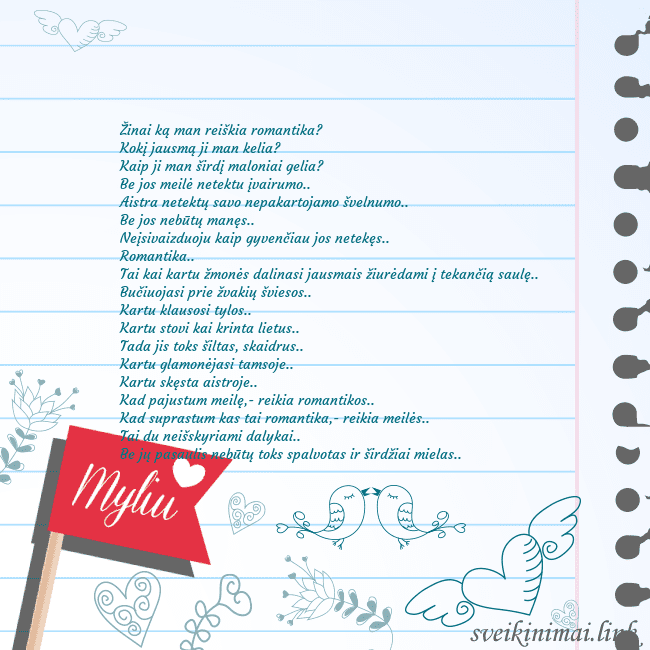 Žinai ką man reiškia romantika?
Kokį jausmą ji man kelia?
Kaip ji man širdį maloniai gelia?
Be jos meilė netektu įvairumo..
Aistra netektų savo nepakartojamo švelnumo..
Be jos nebūtų manęs..
Neįsivaizduoju kaip gyvenčiau jos netekęs..
Romantika..
Tai kai kartu žmonės dalinasi jausmais žiurėdami į tekančią saulę..
Bučiuojasi prie žvakių šviesos..
Kartu klausosi tylos..
Kartu stovi kai krinta lietus..
Tada jis toks šiltas, skaidrus..
Kartu glamonėjasi tamsoje..
Kartu skęsta aistroje..
Kad pajustum meilę,- reikia romantikos..
Kad suprastum kas tai romantika,- reikia meilės..
Tai du neišskyriami dalykai..
Be jų pasaulis nebūtų toks spalvotas ir širdžiai mielas..
Myliu
sveikinimai.link